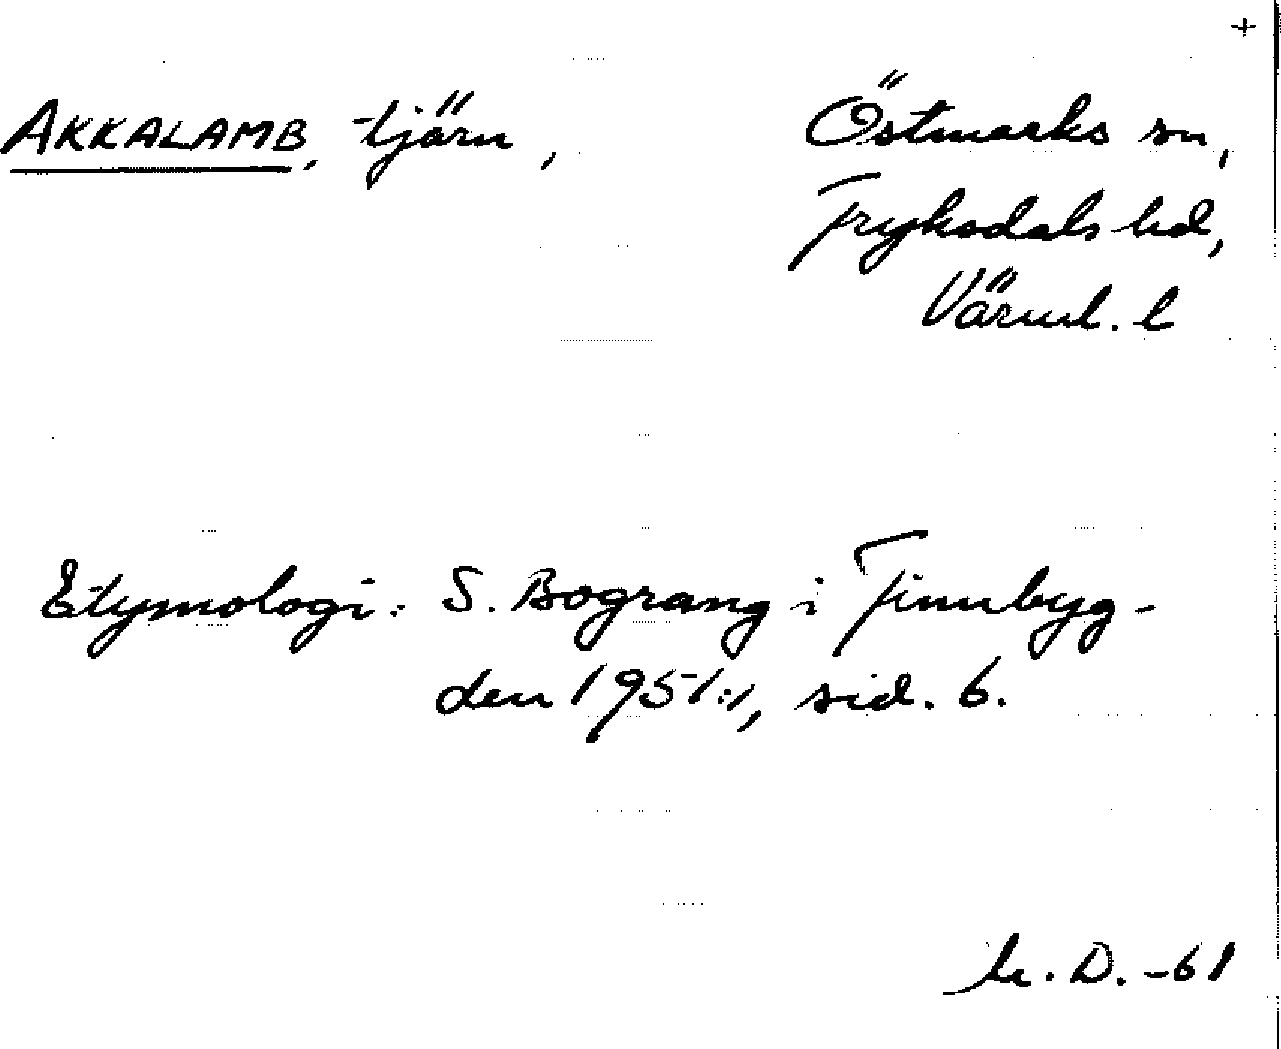 +
AKKALAMB, tjärn, Östmarks sn,
Fryksdals hd,
Värml. l
Etymologi: S. Bograng i Finnbyg-
den 1951:1, sid. 6.
D. -61